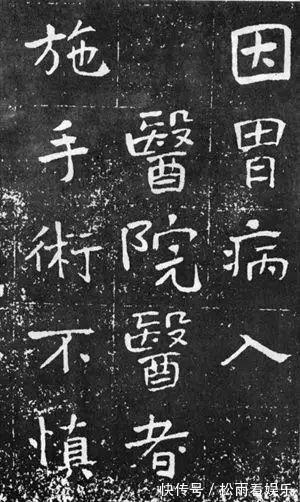 因胃病入
醫院醫者
施手術不慎
快传号/松雨看娱乐